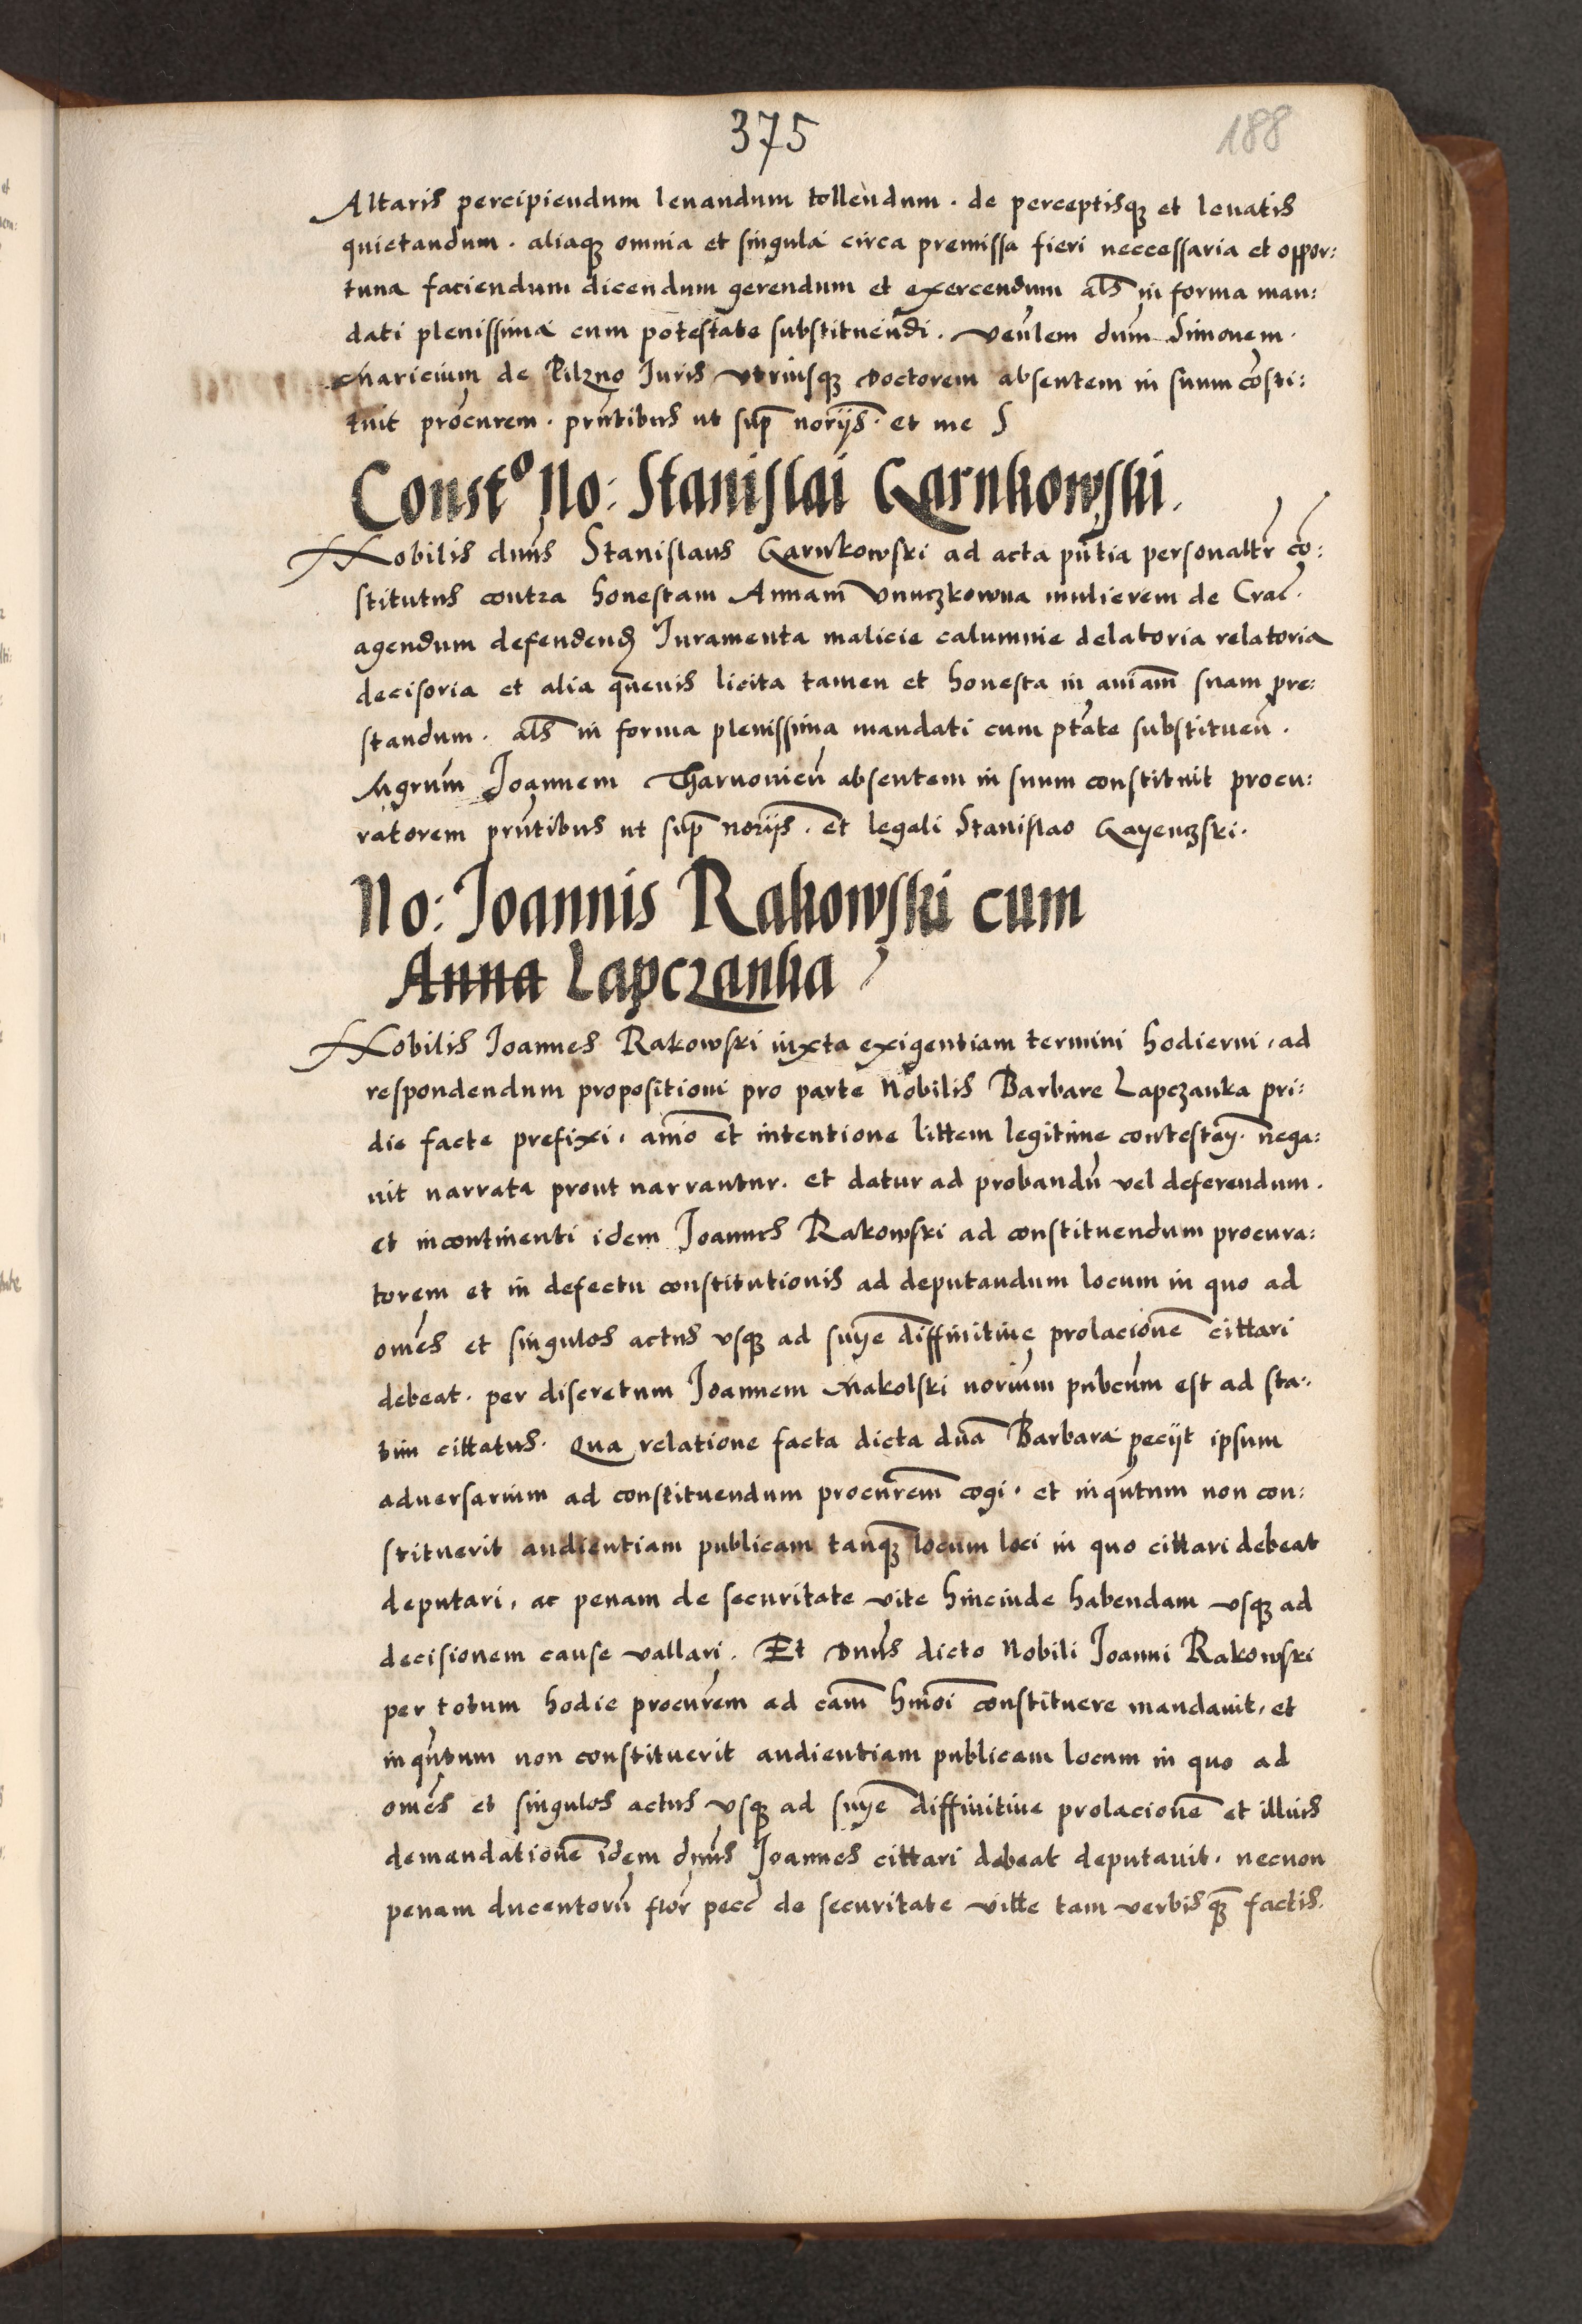 375
188
Altaris percipiendum levandum tollendum. de perceptisq3 et levatis
quietandum. aliaq3 omnia et singula circa premissa fieri neccessaria et oppor:
tuna faciendum dicendum gerendum et exercendum als in forma man:
dati plenissima cum potestate substituendi. venlem dnm Simonem.
Maricium de Pilzno Juris vtriusq3 Doctorem absentem in suum costi:
tuit procurem. pntibus ut sup norijs. et me S
Const⁰ No: Stanislai Garnkowski.
Nobilis dnus Stanislaus Garnkowski ad acta pntia personaltr co:
stitutus contra honestam Annam Vnuczkowna mulierem de Crac.
agendum defendend Juramenta malicie calumnie delatoria relatoria
decisoria et alia quevis licita tamen et honesta in aniam suam pre:
standum. als in forma plenissima mandati cum ptate substituen.
Mgrum Joannem Tharnovien absentem in suum constituit procu:
ratorem pntibus ut sup norijs. et legali Stanislao Gayenczski.
No: Joannis Rakowski cum
Anna Lapczanka
Nobilis Joannes Rakowski iuxta exigentiam termini hodierni, ad
respondendum propositioni pro parte Nobilis Barbare Lapczanka pri:
die facte prefixi, amo et intentione littem legitime contestan. nega:
uit narrata prout narrantur. et datur ad probandu vel deferendum.
et incontinenti idem Joannes Rakowski ad constituendum procura:
torem et in defectu constitutionis ad deputandum locum in quo ad
omes et singulos actus vsq3 ad snye diffinitiue prolacione cittari
debeat. per discretum Joannem Makolski norium pubcum est ad sta:
tim cittatus. Qua relatione facta dicta dna Barbara pecijt ipsum
adversarium ad constituendum procurem cogi. et inquntum non con:
stituerit audientiam publicam tanq3 locum loci in quo cittari debeat
deputari, ac penam de securitate vite hincinde habendam vsq3 ad
decisionem cause vallari. Et Dnus dicto Nobili Joanni Rakowski
per totum hodie procurem ad cam hmoi constituere mandauit, et
inquntum non constituerit audientiam publicam locum in quo ad
omes et singulos actus vsq3 ad snye diffinitiue prolacione et illius
demandatione idem dnus Joannes cittari debeat deputauit. necnon
penam ducentoru flor pecc de securitate vitte tam verbis q3 factis.